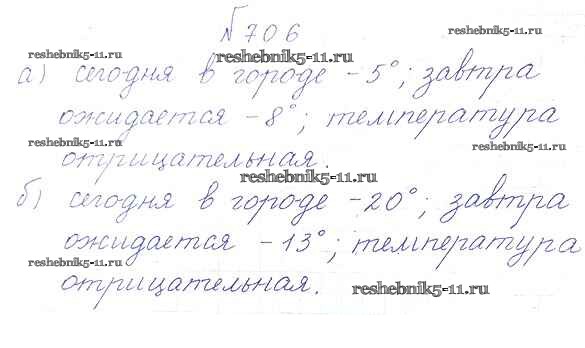 №706
reshebnik5-11.ru reshebnik5-11.ru reshebnik5-11.ru
а) сегодня в городе -5°; завтра
ожидается -8°; температура
reshebnik5-11.ru reshebnik5-11.ru
отрицательная.
reshebnik5-11.ru
б) сегодня в городе -20°; завтра
ожидается -13°; температура
reshebnik5-11.ru
отрицательная.
reshebnik5-11.ru